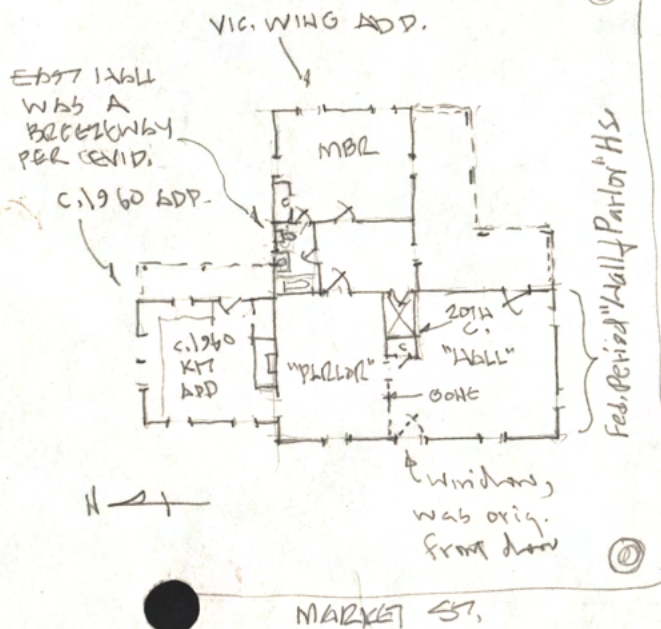 VIC. WING ADD.
EAST
WAS A
BREEZEWAY
PER EVID.
C.1960 ADD.
MBR
C
20TH
C.
C.1960
KIT
ADD
"PARLOR"
C
"HALL"
GONE
Fed. Period "Hall & Parlor" Hs
N
window,
was orig.
front door
MARKET ST.